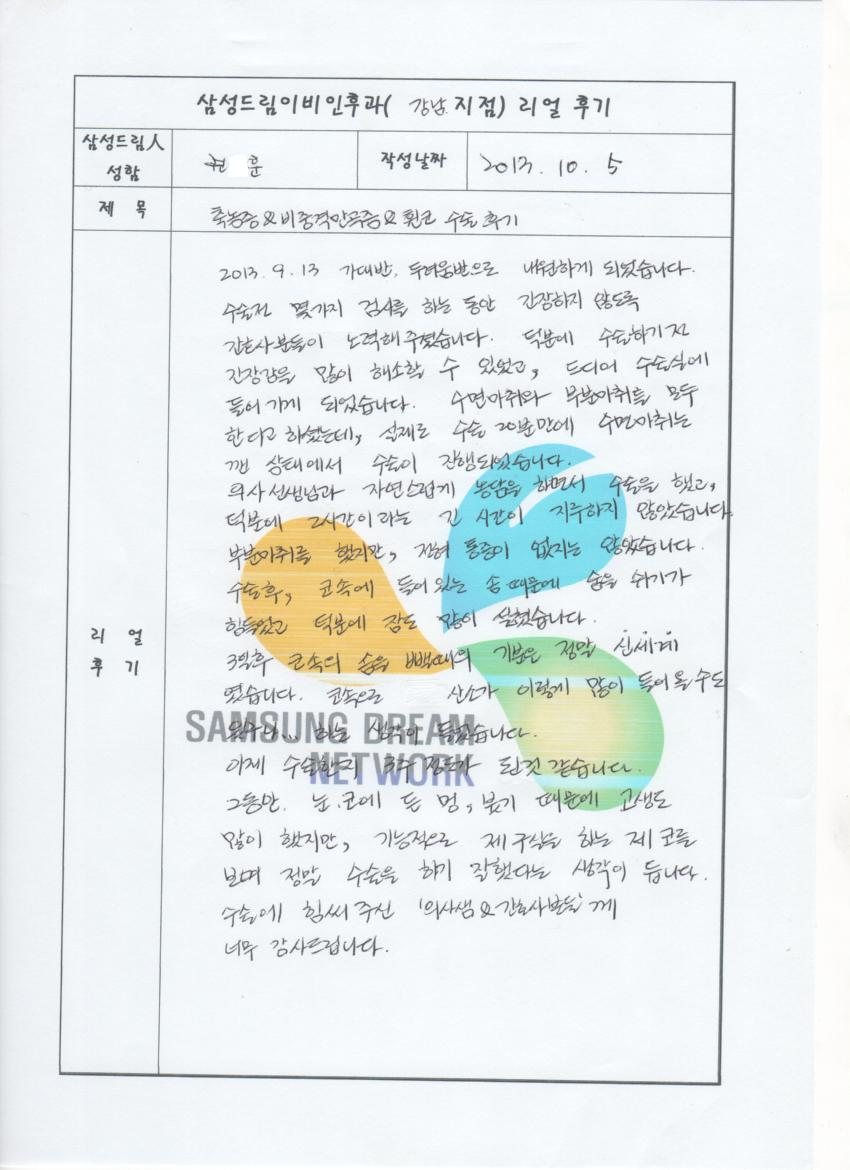 삼성드림이비인후과( 강남 지점) 리얼 후기
삼성드림人
성함
훈
작성날짜
2013. 10. 5
제 목
축농증 & 비중격만곡증 & 휜코 수술 후기
리 얼
후 기
2013. 9. 13 기대반, 두려움반으로 내원하게 되었습니다.
수술전 몇가지 검사를 하는 동안 긴장하지 않도록
간호사분들이 노력해주셨습니다. 덕분에 수술하기전
긴장감을 많이 해소할 수 있었고, 드디어 수술실에
들어가게 되었습니다. 수면마취와 부분마취를 모두
한다고 하셨는데, 실제로 수술 20분만에 수면마취는
깬 상태에서 수술이 진행되었습니다.
의사선생님과 자연스럽게 농담을 하면서 수술을 했고,
덕분에 2시간이라는 긴 시간이 지루하지 않았습니다.
부분마취를 했지만, 전혀 통증이 없지는 않았습니다.
수술후, 코속에 들어있는 솜 때문에 숨을 쉬기가
힘들었고 덕분에 잠도 많이 설쳤습니다.
3일후 코속의 솜을 뺐을때의 기분은 정말 신.세.계
였습니다. 코속으로 산소가 이렇게 많이 들어올 수도
있구나... 하는 생각이 들었습니다.
SAMSUNG DREAM
NETWORK
이제 수술한지 3주 정도가 된것 같습니다.
그동안. 눈.코에 든 멍, 붓기 때문에 고생도
많이 했지만, 기능적으로 제 구실을 하는 제 코를
보며 정말 수술을 하기 잘했다는 생각이 듭니다.
수술에 힘써 주신 '의사샘 & 간호사분들'께
너무 감사드립니다.